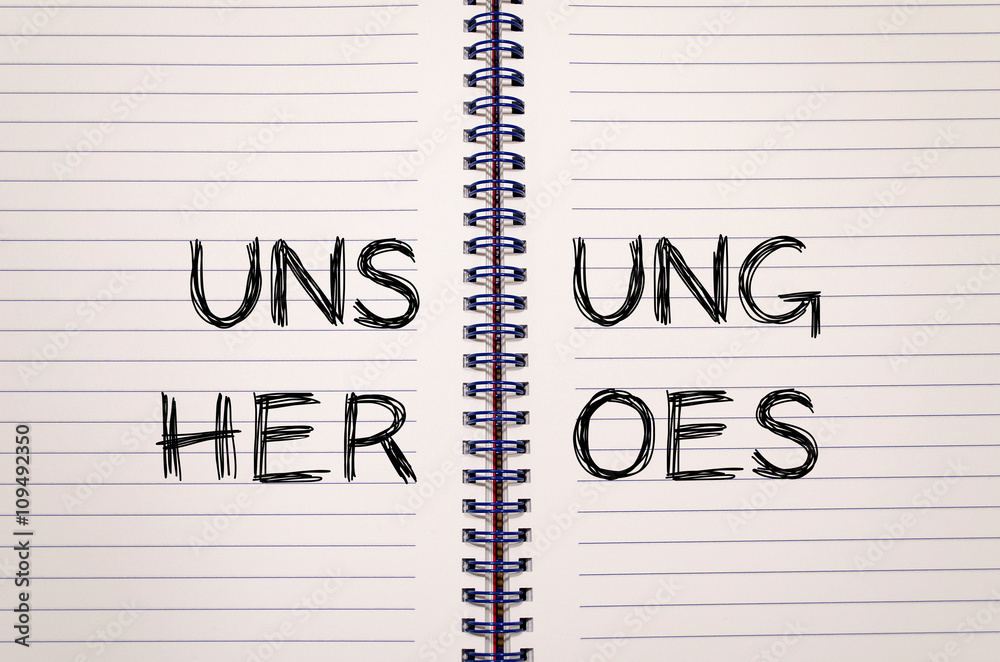 UNSUNG
HEROES
Adobe Stock | #109492350